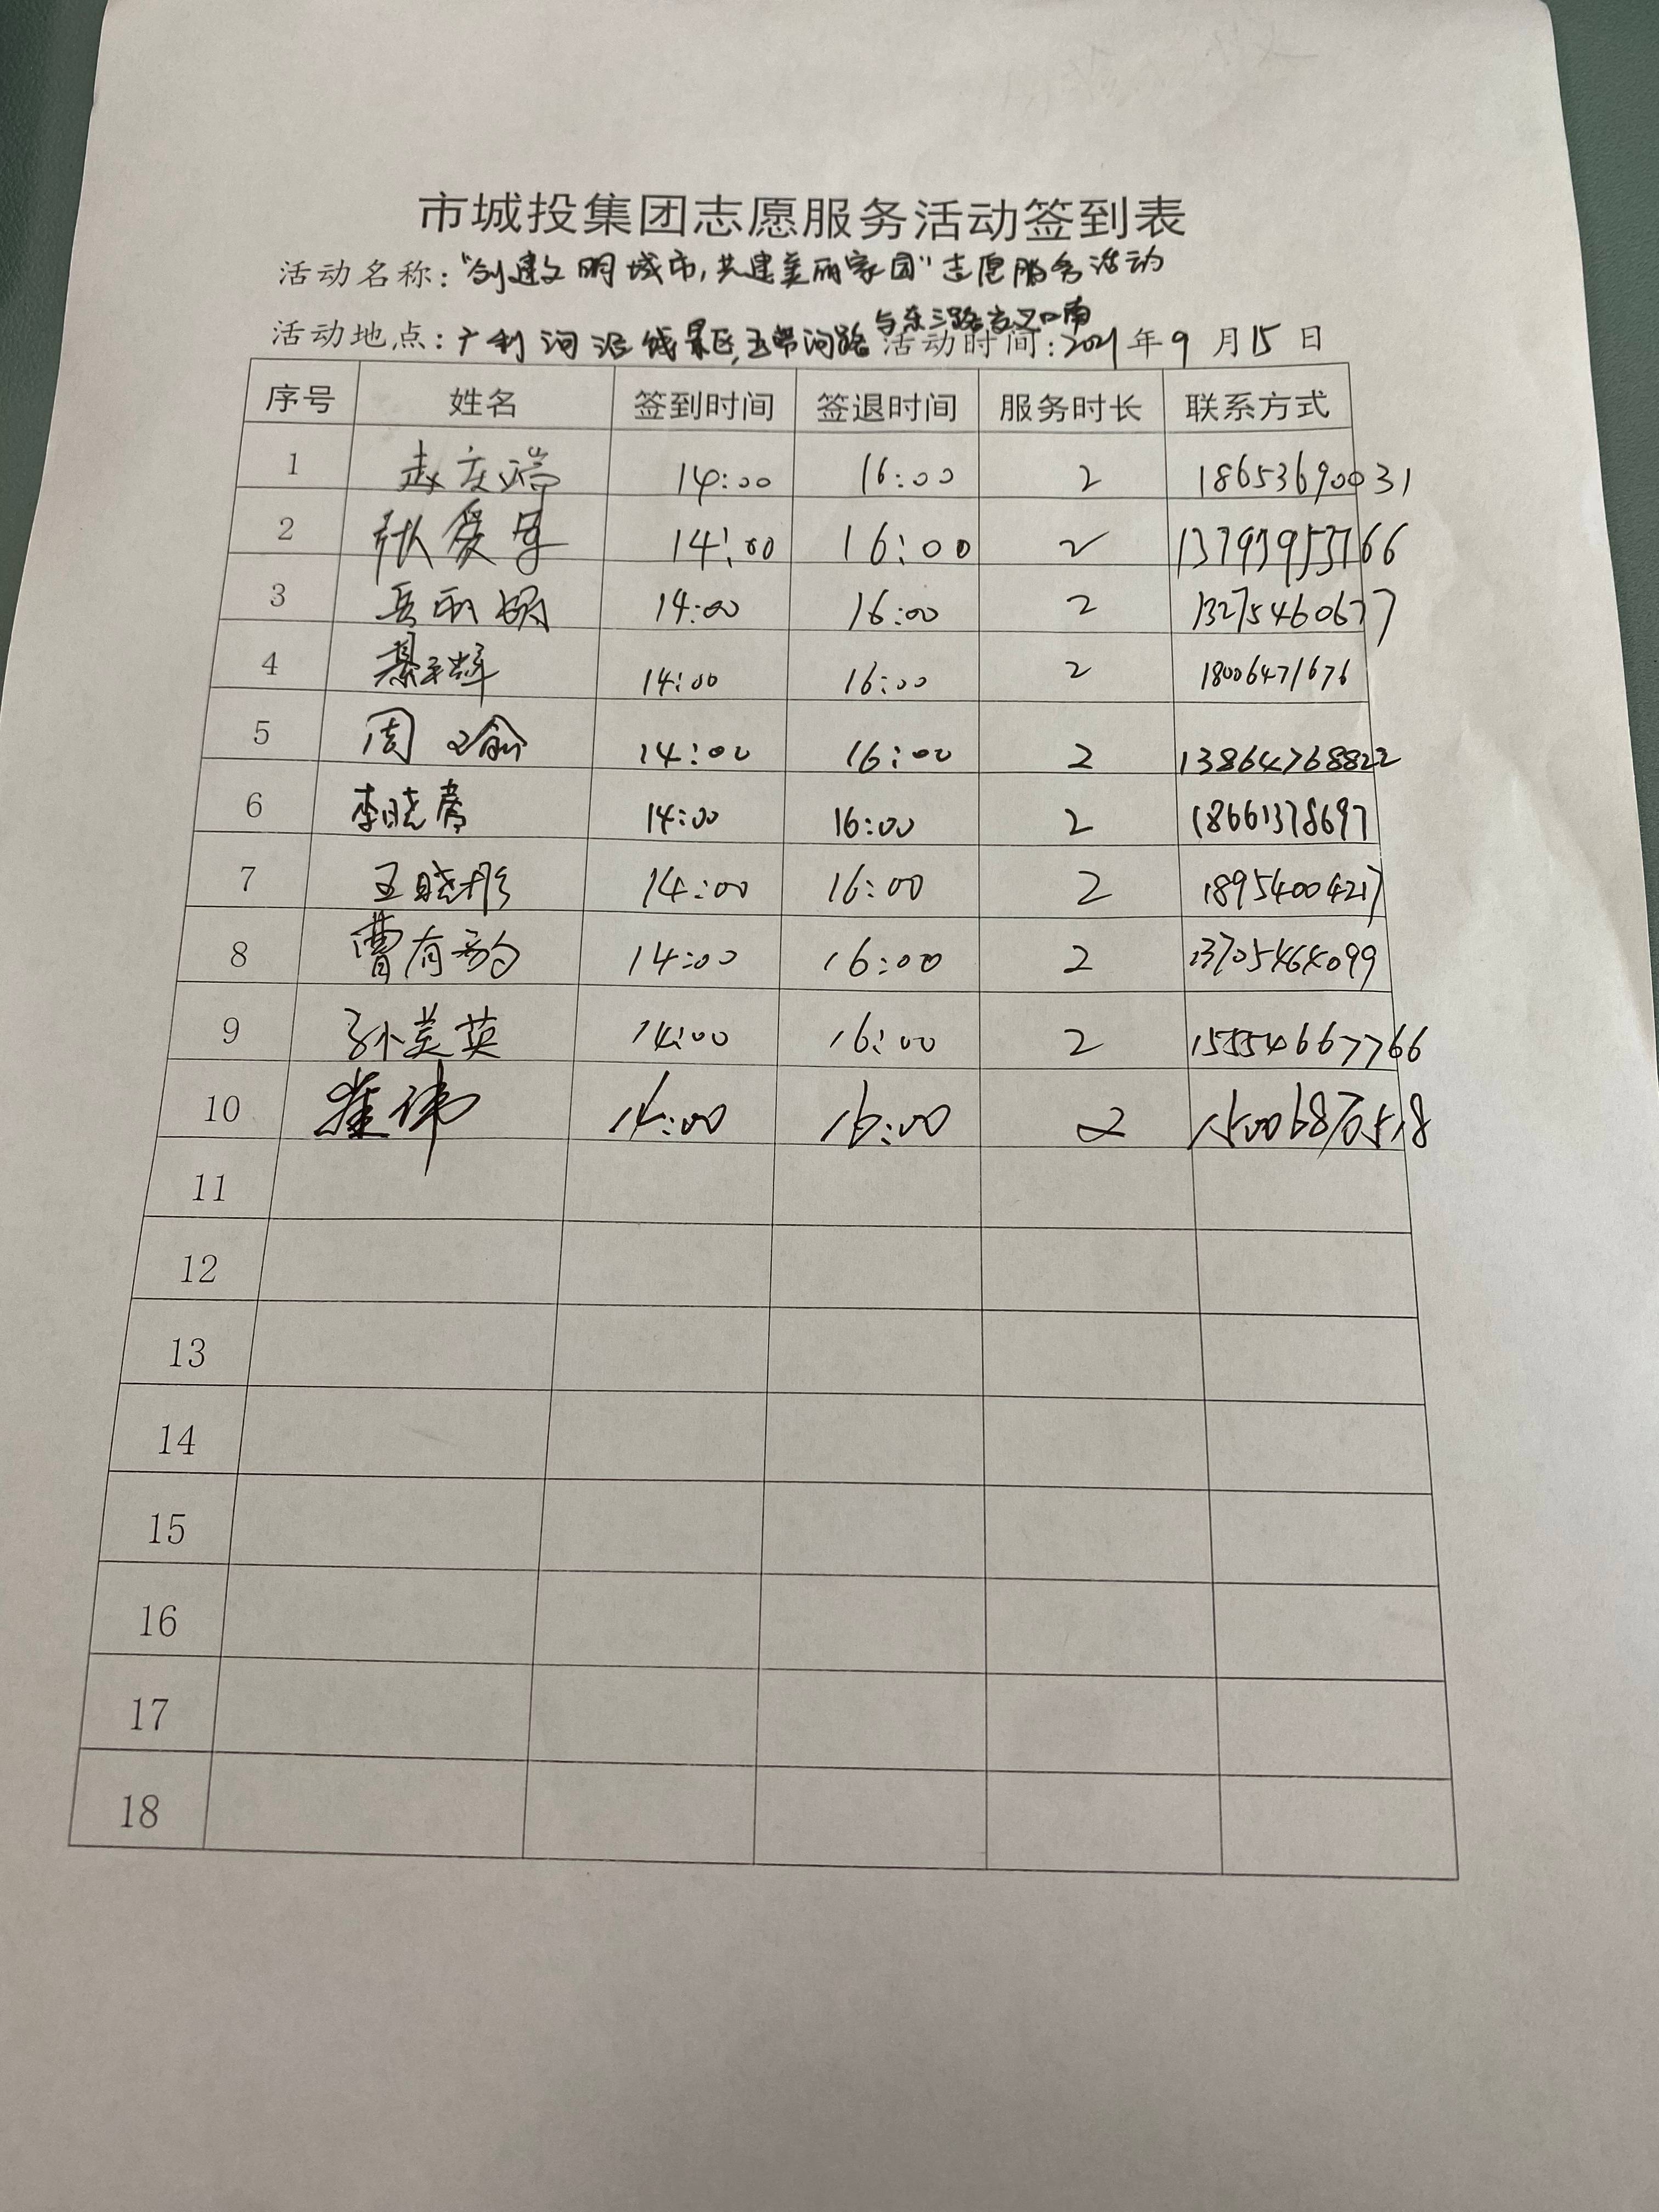 市城投集团志愿服务活动签到表
活动名称："创建文明城市,共建美丽家园"志愿服务活动
与东三路交叉口南
活动地点：广利河沿线景区, 河路 活动时间：2021年9月15日
序号 姓名 签到时间 签退时间 服务时长 联系方式
1 赵庆瑞 14:00 16:00 2 18653690031
2 张爱军 14:00 16:00 2
3 14:00 16:00 2 13275460677
4 14:00 16:00 2 18006471676
5 周瑜 14:00 16:00 2 13864768822
6 李晓青 14:00 16:00 2 18661378697
7 王晓彤 14:00 16:00 2 18954004217
8 曹有韵 14:00 16:00 2 13705464099
9 孙美英 14:00 16:00 2 15554667766
10 崔伟 14:00 16:00 2
11
12
13
14
15
16
17
18